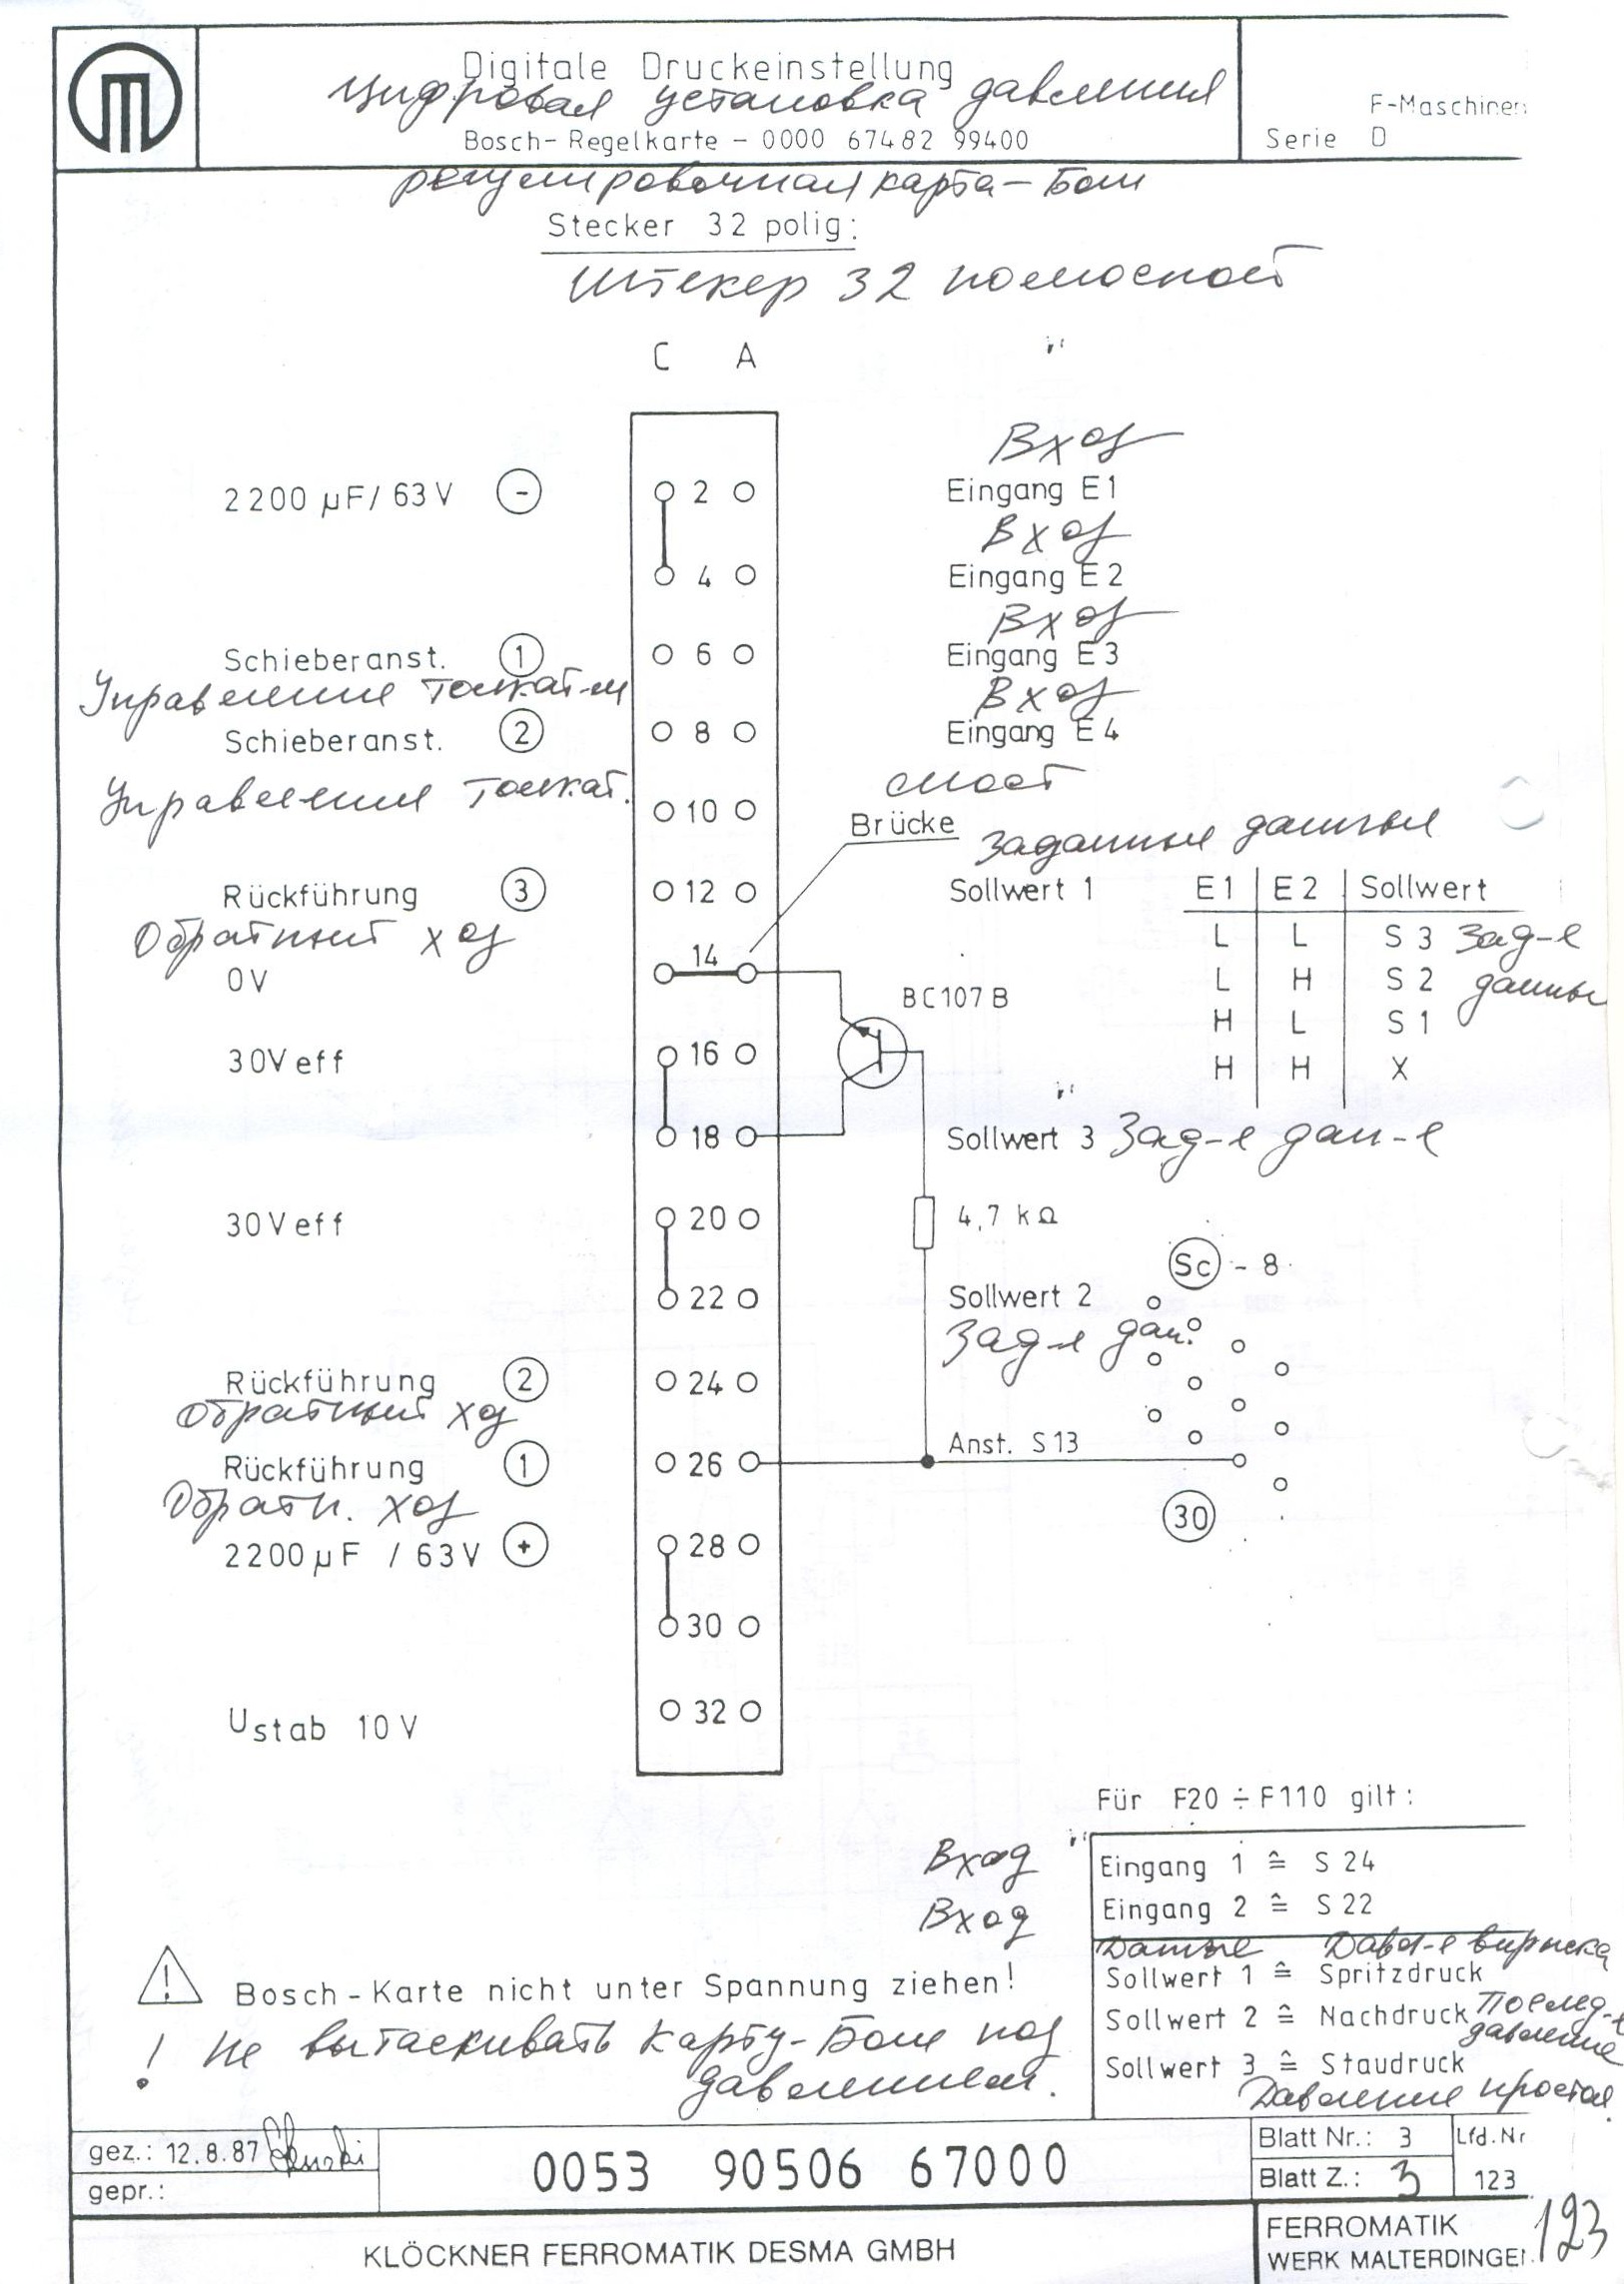 Digitale Druckeinstellung
цифровая установка давления
Bosch-Regelkarte - 0000 67482 99400
F-Maschinen
Serie D
регулировочная карта - Бош
Stecker 32 polig:
штекер 32 полюсной
C A
Вход
2200 µF/ 63V - 2 Eingang E1
Вход
4 Eingang E2
Вход
Schieberanst. 1 6 Eingang E3
Управление толкат-м Вход
Schieberanst. 2 8 Eingang E4
Управление толкат. мост
10 Brücke
заданные данные
Rückführung 3 12 Sollwert 1 E1 E2 Sollwert
Обратный ход L L S3 Зад-е
0V 14 L H S2 данные
BC107B
H L S1
30Veff 16 H H X
18 Sollwert 3 Зад-е дан-е
30Veff 20 4,7 kΩ
Sc - 8
22 Sollwert 2
Зад-е дан.
Rückführung 2 24
Обратный ход
Rückführung 1 26 Anst. S13
Обратн. ход
30
2200µF / 63V + 28
30
Ustab 10V 32
Für F20 ÷ F110 gilt:
Вход Eingang 1 ≙ S24
Вход Eingang 2 ≙ S22
Данные Давл-е впрыска
! Bosch-Karte nicht unter Spannung ziehen!
Sollwert 1 ≙ Spritzdruck
Sollwert 2 ≙ Nachdruck послед-е
давление
! Не вытаскивать карту-Бош под
давлением.
Sollwert 3 ≙ Staudruck
Давление простоя
gez.: 12.8.87
gepr.:
0053 90506 67000
Blatt Nr.: 3
Blatt Z.: 3
Lfd. Nr
123
KLÖCKNER FERROMATIK DESMA GMBH
FERROMATIK
WERK MALTERDINGEN
123